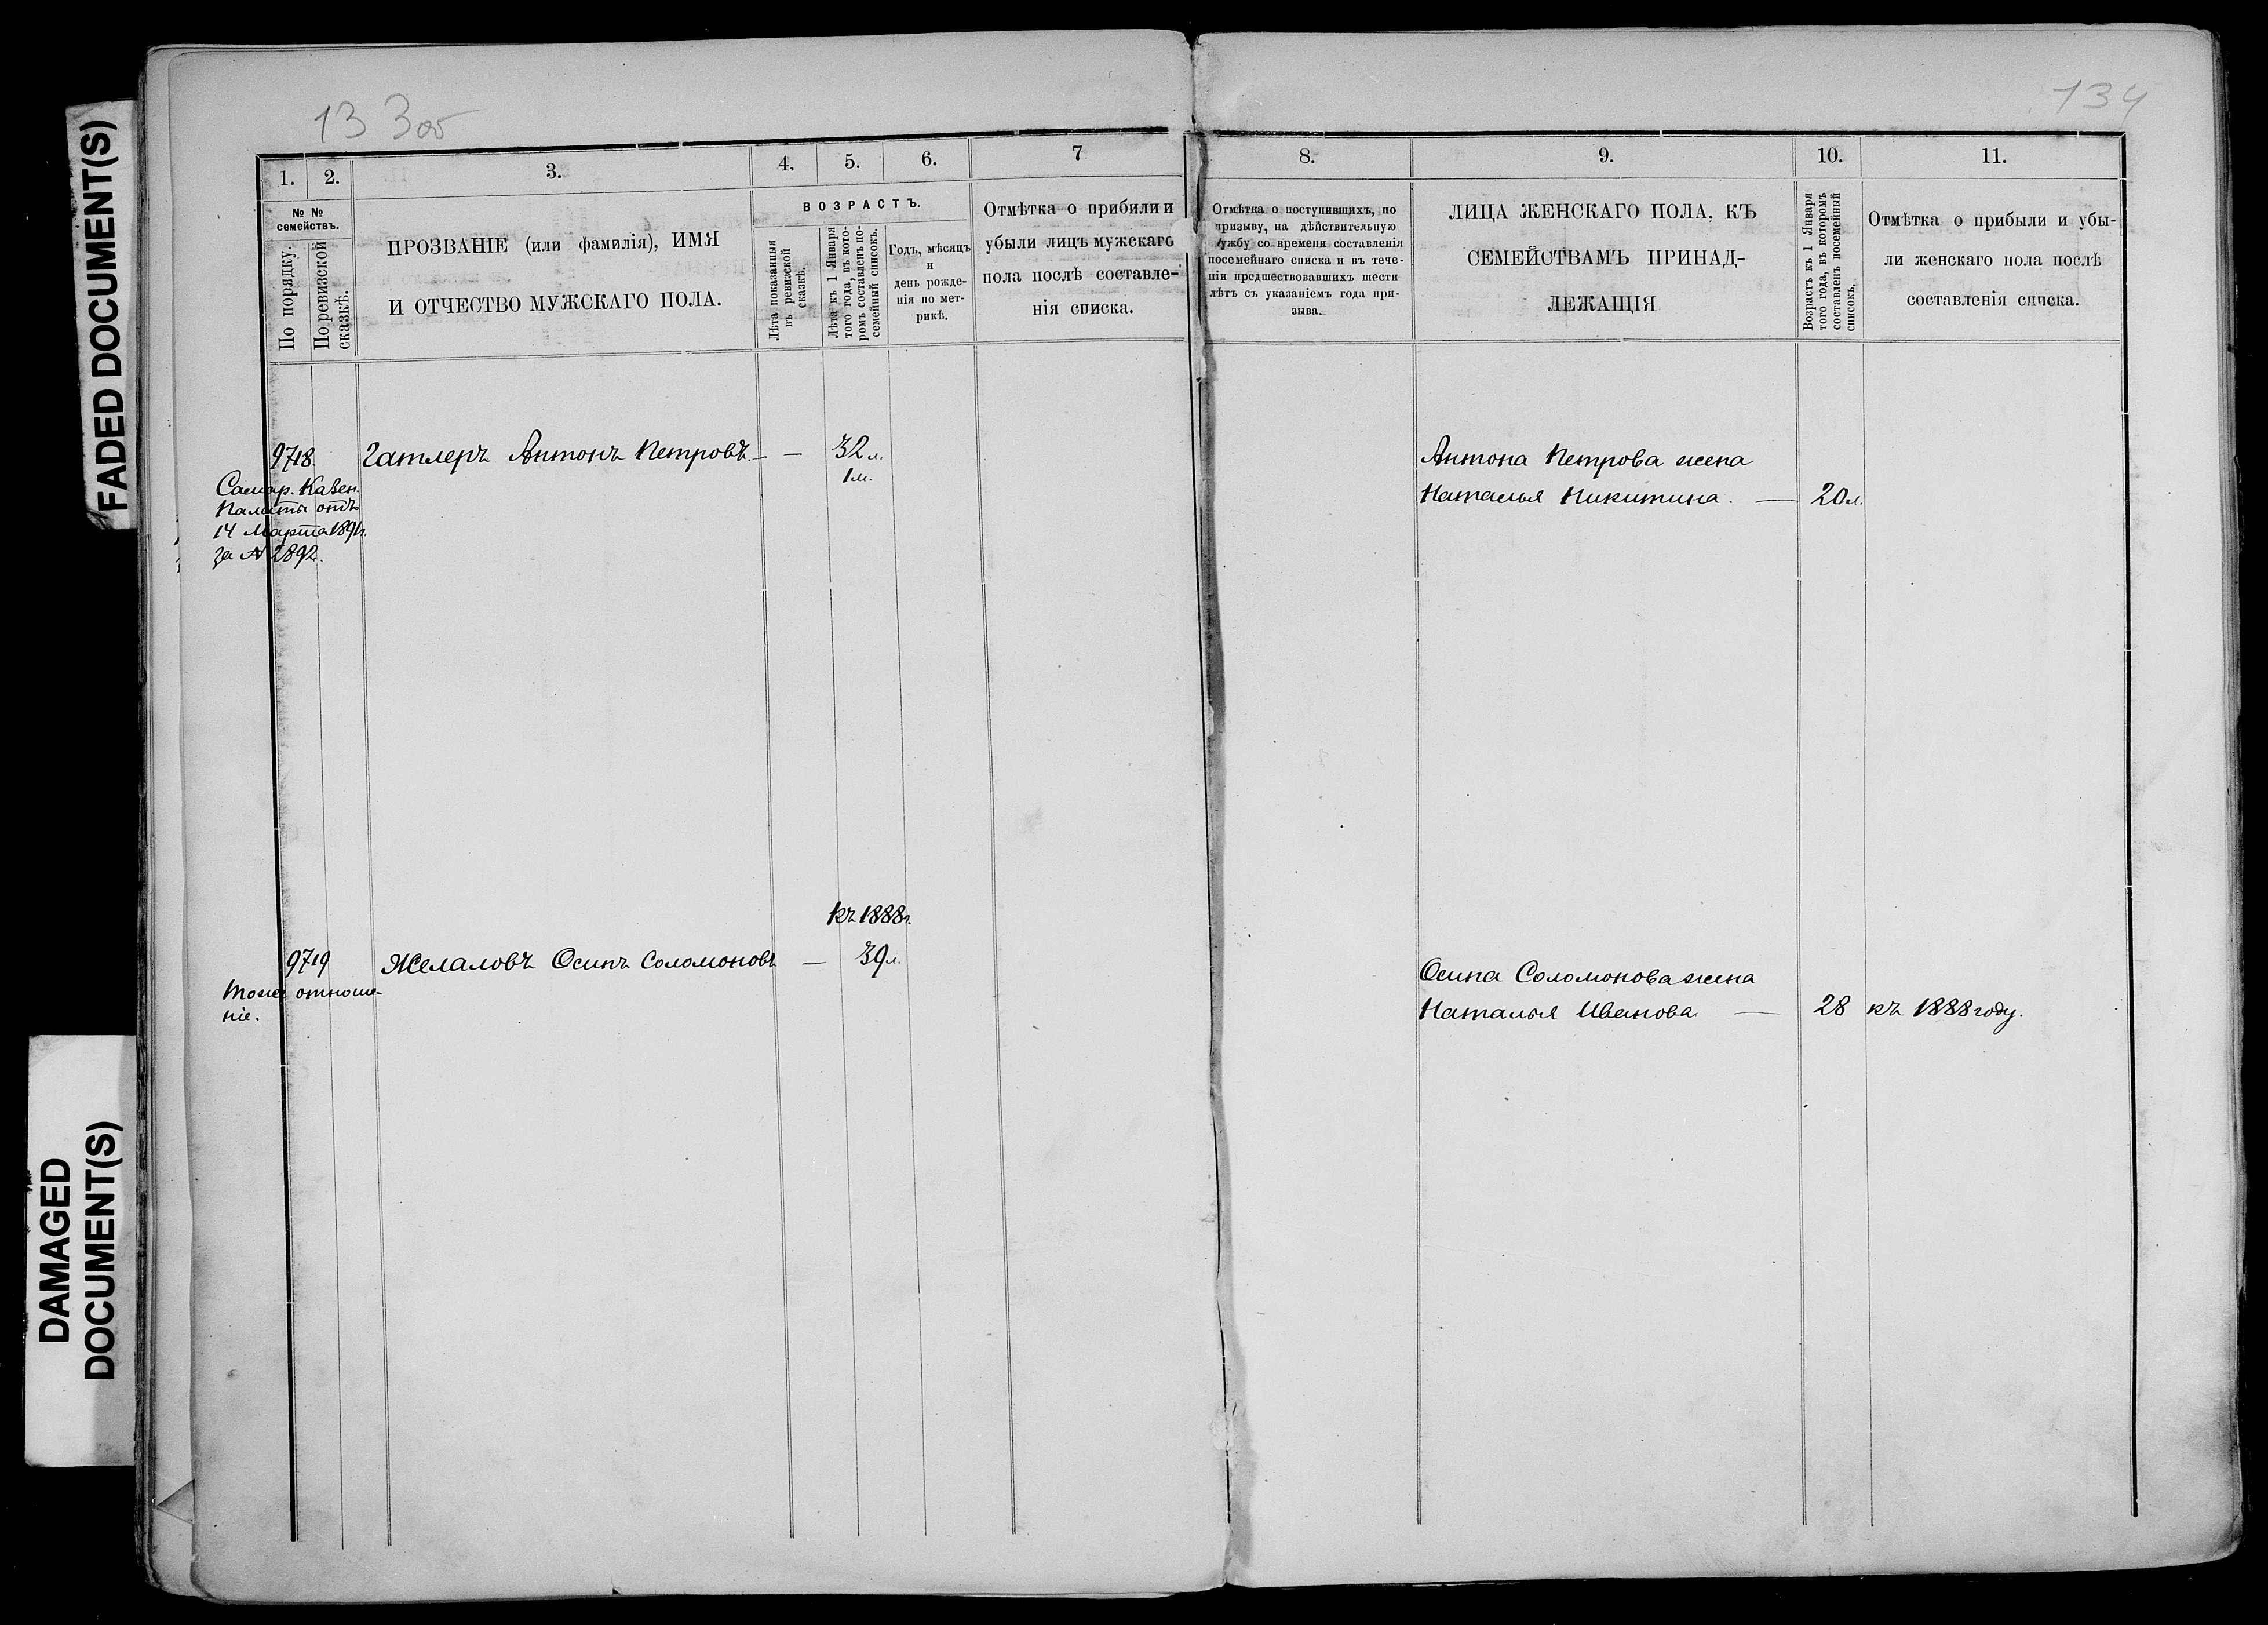 FADED DOCUMENT(S)
DAMAGED
DOCUMENT(S)
133об
134
1.
2.
3.
4.
5.
6.
7
№ №
семействъ.
По порядку.
По ревизской
сказкѣ.
ПРОЗВАНІЕ (или фамилія), ИМЯ
И ОТЧЕСТВО МУЖСКАГО ПОЛА.
ВОЗРАСТЪ.
Лѣта показанныя
въ ревизской
сказкѣ.
Лѣта къ 1 Января
того года, въ кото-
ромъ составленъ по-
семейный списокъ.
Годъ, мѣсяцъ
и
день рожде-
нія по мет-
рикѣ.
Отмѣтка о прибыли и
убыли лицъ мужскаго
пола послѣ составле-
нія списка.
9718.
Гатлеръ Антонъ Петровъ. — —
32 л.
1 м.
Самар. Казен.
Палаты отъ
14 Марта 1891г.
за № 2892.
къ 1888г.
9719
Желаловъ Осипъ Соломоновъ —
39 л.
Тоже отноше-
ніе.
8.
9.
10.
11.
Отмѣтка о поступившихъ, по
призыву, на дѣйствительную
лужбу со времени составленія
посемейнаго списка и въ тече-
ніи предшествовавшихъ шести
лѣтъ съ указаніемъ года при-
зыва.
ЛИЦА ЖЕНСКАГО ПОЛА, КЪ
СЕМЕЙСТВАМЪ ПРИНАД-
ЛЕЖАЩІЯ
Возрастъ къ 1 Января
того года, въ которомъ
составленъ посемейный
списокъ.
Отмѣтка о прибыли и убы-
ли женскаго пола послѣ
составленія списка.
Антона Петрова жена
Наталья Никитина. — 20 л.
Осипа Соломонова жена
Наталья Иванова — 28 къ 1888 году.